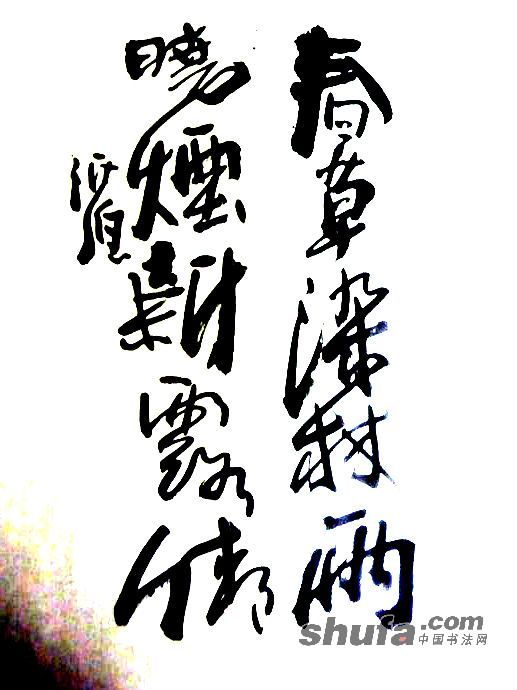 春草染林雨
曉煙新露
shufa.com
中国书法网